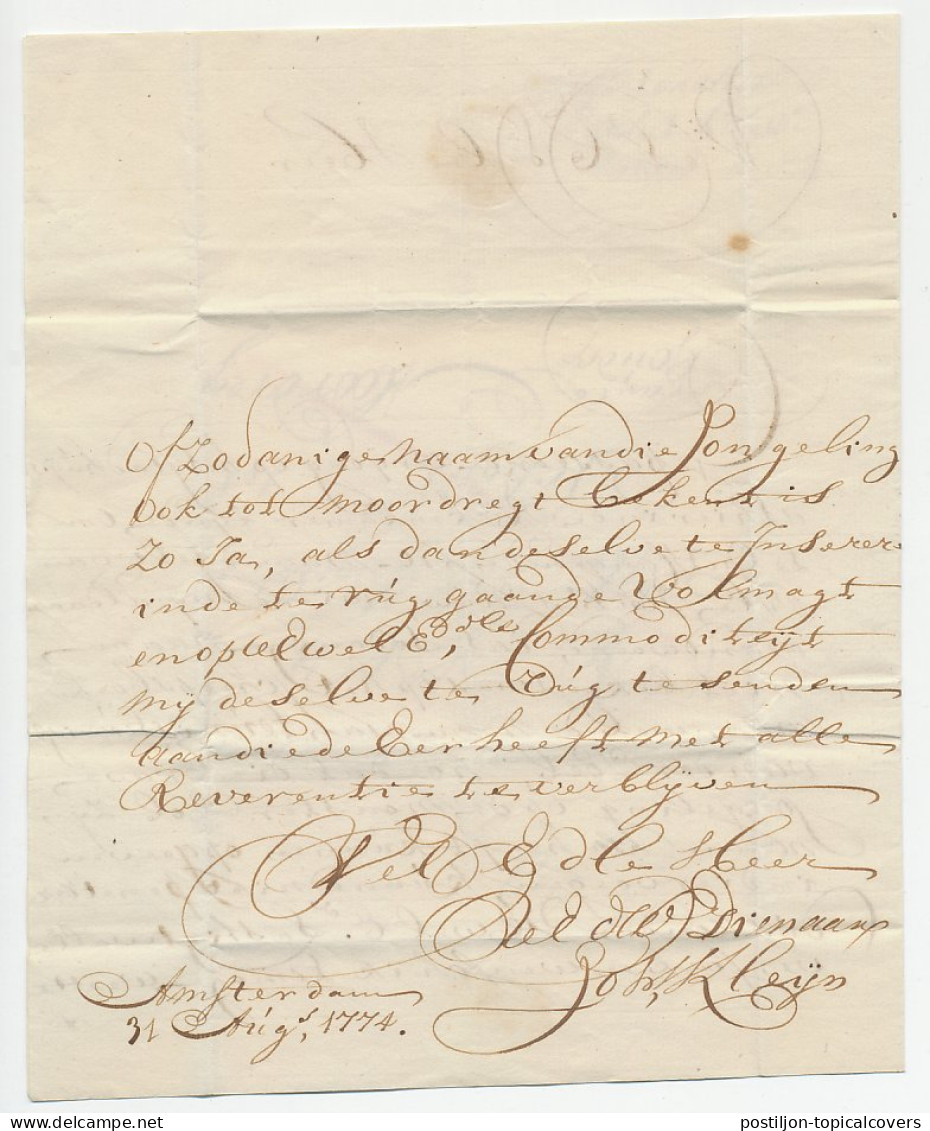 Of Zodanige Naam van die Jongeling
Ook tot Moordregt bekent is
Zo Ja, als dan deselve te Inserer
in de te rúg gaande Volmagt
en op Uwel Ed,dle Commoditeijt
mij deselve te Rúg te senden
aan die de Eer heeft met alle
Reverentie te verblijven
Wel Edle Heer
UEd DW Dienaar
Joh, Kleijn
Amsterdam
31 Aúgs, 1774.
postiljon-topicalcovers